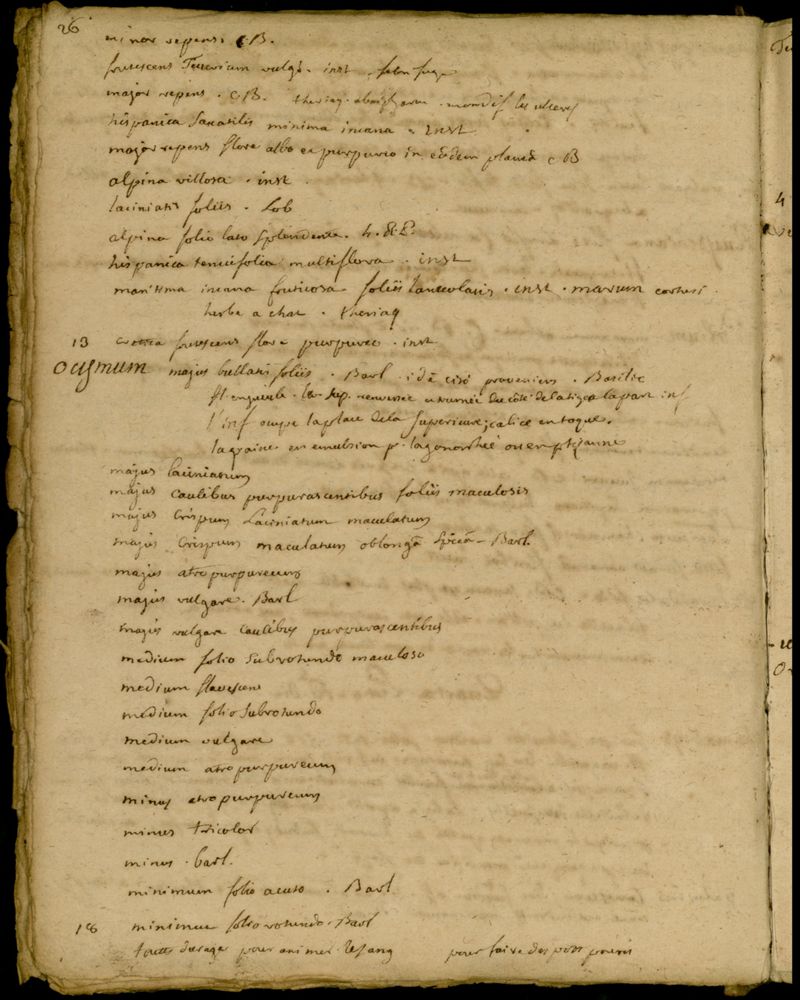 26
minor repens. C.B.
frutescens Teucrium vulgò. inst. febrifuge
major repens. C.B. theriaq. mondif les ulceres
hispanica Saxatilis minima incana. inst
major repens flore albo et purpureo in eodem CB
alpina villosa. inst.
laciniatis foliis. Lob
alpina folio lato splendente. h. R. P.
hispanica tenuifolia multiflora. inst
maritima incana fruticosa foliis lanceolatis. inst. marum cortusi.
herbe a chat. theriaq
13 cretica frutescens flore purpureo. inst
Ocymum majus bullatis foliis. Barl. Basilic
fl. en gueule. la sup. renversée et tournée du côté de la tige a la part inf
l'inf ocupe la place de la superieure; calice en toque.
la graine en emulsion pr. la gonorrhée
majus laciniatum
majus caulibus purpurascentibus foliis maculosis
majus Crispum Laciniatum maculatum
majus Crispum maculatum oblongâ spicâ. Barl.
majus atropurpureum
majus vulgare. Barl
majus vulgare Caulibus purpurascentibus
medium folio Subrotundo maculoso
medium flavescens
medium folio Subrotundo
medium vulgare
medium atropurpureum
minus atropurpureum
minus tricolor
minus. barl.
minimum folio acuto. Barl
18 minimum folio rotundo. Barl
pour animer le sang pour faire des pots pouris
4